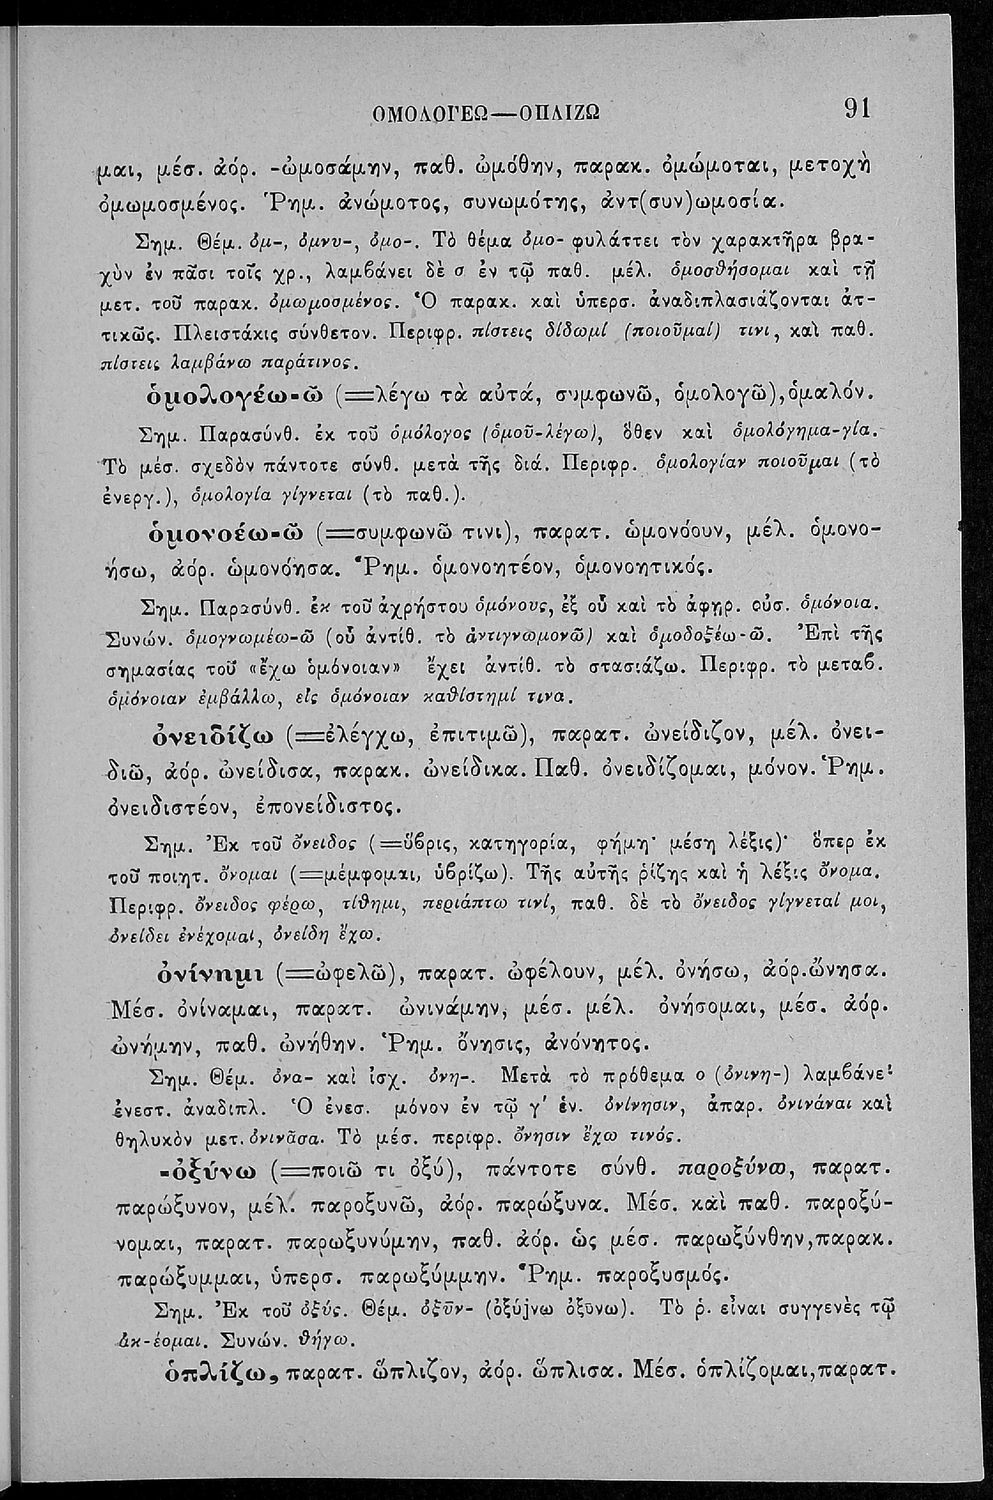 ΟΜΟΛΟΓΕΩ—ΟΠΛΙΖΩ 91
μαι, μέσ. ἀόρ. -ὠμοσάμην, παθ. ὠμόθην, παρακ. ὀμώμοται, μετοχὴ
ὀμωμοσμένος. Ῥημ. ἀνώμοτος, συνωμότης, ἀντ(συν)ωμοσία.
Σημ. Θέμ. ὀμ-, ὀμνυ-, ὀμο-. Τὸ θέμα ὀμο- φυλάττει τὸν χαρακτῆρα βρα-
χὺν ἐν πᾶσι τοῖς χρ., λαμβάνει δὲ σ ἐν τῷ παθ. μέλ. ὀμοσθήσομαι καὶ τῇ
μετ. τοῦ παρακ. ὀμωμοσμένος. Ὁ παρακ. καὶ ὑπερσ. ἀναδιπλασιάζονται ἀτ-
τικῶς. Πλειστάκις σύνθετον. Περιφρ. πίστεις δίδωμί (ποιοῦμαί) τινι, καὶ παθ.
πίστεις λαμβάνω παράτινος.
ὁμολογέω-ῶ (=λέγω τὰ αὐτά, συμφωνῶ, ὁμολογῶ),ὁμαλόν.
Σημ. Παρασύνθ. ἐκ τοῦ ὁμόλογος (ὁμοῦ-λέγω), ὅθεν καὶ ὁμολόγημα-γία.
Τὸ μέσ. σχεδὸν πάντοτε σύνθ. μετὰ τῆς διά. Περιφρ. ὁμολογίαν ποιοῦμαι (τὸ
ἐνεργ.), ὁμολογία γίγνεται (τὸ παθ.).
ὁμονοέω-ῶ (=συμφωνῶ τινι), παρατ. ὡμονόουν, μέλ. ὁμονο-
ήσω, ἀόρ. ὡμονόησα. Ῥημ. ὁμονοητέον, ὁμονοητικός.
Σημ. Παρασύνθ. ἐκ τοῦ ἀχρήστου ὁμόνους, ἐξ οὗ καὶ τὸ ἀφῃρ. οὐσ. ὁμόνοια.
Συνών. ὁμογνωμέω-ῶ (οὗ ἀντίθ. τὸ ἀντιγνωμονῶ) καὶ ὁμοδοξέω-ῶ. Ἐπὶ τῆς
σημασίας τοῦ «ἔχω ὁμόνοιαν» ἔχει ἀντίθ. τὸ στασιάζω. Περιφρ. τὸ μεταβ.
ὁμόνοιαν ἐμβάλλω, εἰς ὁμόνοιαν καθίστημί τινα.
ὀνειδίζω (=ἐλέγχω, ἐπιτιμῶ), παρατ. ὠνείδιζον, μέλ. ὀνει-
διῶ, ἀόρ. ὠνείδισα, παρακ. ὠνείδικα. Παθ. ὀνειδίζομαι, μόνον. Ῥημ.
ὀνειδιστέον, ἐπονείδιστος.
Σημ. Ἐκ τοῦ ὄνειδος (=ὕβρις, κατηγορία, φήμη· μέση λέξις)· ὅπερ ἐκ
τοῦ ποιητ. ὄνομαι (=μέμφομαι, ὑβρίζω). Τῆς αὐτῆς ῥίζης καὶ ἡ λέξις ὄνομα.
Περιφρ. ὄνειδος φέρω, τίθημι, περιάπτω τινί, παθ. δὲ τὸ ὄνειδος γίγνεταί μοι,
ὀνείδει ἐνέχομαι, ὀνείδη ἔχω.
ὀνίνημι (=ὠφελῶ), παρατ. ὠφέλουν, μέλ. ὀνήσω, ἀόρ.ὤνησα.
Μέσ. ὀνίναμαι, παρατ. ὠνινάμην, μέσ. μέλ. ὀνήσομαι, μέσ. ἀόρ.
ὠνήμην, παθ. ὠνήθην. Ῥημ. ὄνησις, ἀνόνητος.
Σημ. Θέμ. ὀνα- καὶ ἰσχ. ὀνη-. Μετὰ τὸ πρόθεμα ο (ὀνινη-) λαμβάνει
ἐνεστ. ἀναδιπλ. Ὁ ἐνεσ. μόνον ἐν τῷ γ′ ἑν. ὀνίνησιν, ἀπαρ. ὀνινάναι καὶ
θηλυκὸν μετ. ὀνινᾶσα. Τὸ μέσ. περιφρ. ὄνησιν ἔχω τινός.
-ὀξύνω (=ποιῶ τι ὀξύ), πάντοτε σύνθ. παροξύνω, παρατ.
παρώξυνον, μέλ. παροξυνῶ, ἀόρ. παρώξυνα. Μέσ. καὶ παθ. παροξύ-
νομαι, παρατ. παρωξυνύμην, παθ. ἀόρ. ὡς μέσ. παρωξύνθην,παρακ.
παρώξυμμαι, ὑπερσ. παρωξύμμην. Ῥημ. παροξυσμός.
Σημ. Ἐκ τοῦ ὀξύς. Θέμ. ὀξῡν- (ὀξύjνω ὀξῡνω). Τὸ ῥ. εἶναι συγγενὲς τῷ
ἀκ-έομαι. Συνών. θήγω.
ὁπλίζω, παρατ. ὥπλιζον, ἀόρ. ὥπλισα. Μέσ. ὁπλίζομαι,παρατ.